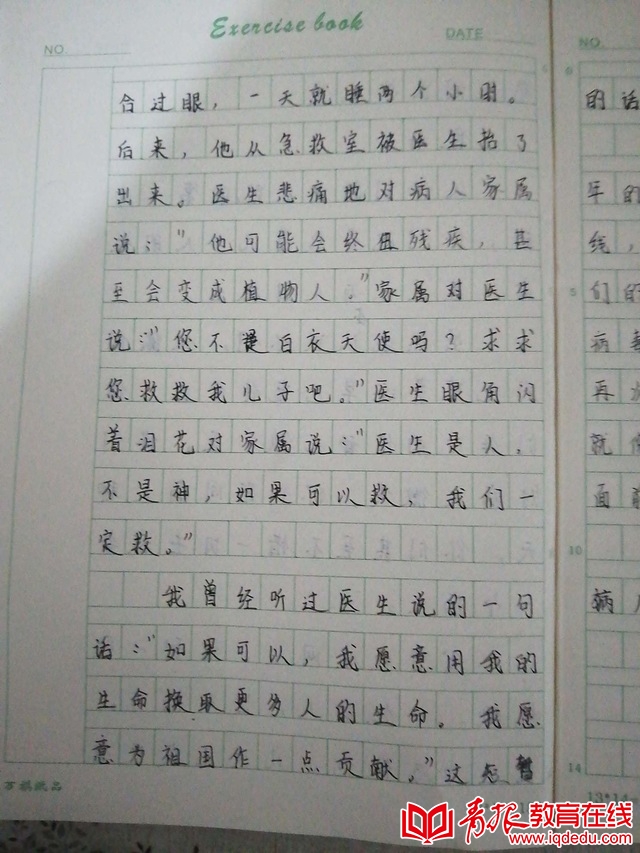 Exercise book
NO.
DATE
合过眼，一天就睡两个小时。
后来，他从急救室被医生抬了
出来。医生悲痛地对病人家属
说：“他可能会终身残疾，甚
至会变成植物人。”家属对医生
说：“您不是白衣天使吗？求求
您救救我儿子吧。”医生眼角闪
着泪花对家属说：“医生是人，
不是神，如果可以救，我们一
定救。”
我曾经听过医生说的一句
话：“如果可以，我愿意用我的
生命换取更多人的生命。我愿
意为祖国作一点贡献。”这
万旗纸品
NO.
的话
年的
线，
5
们的
病
再次
就
面前
10
病人
14
青报教育在线
www.iqdedu.com